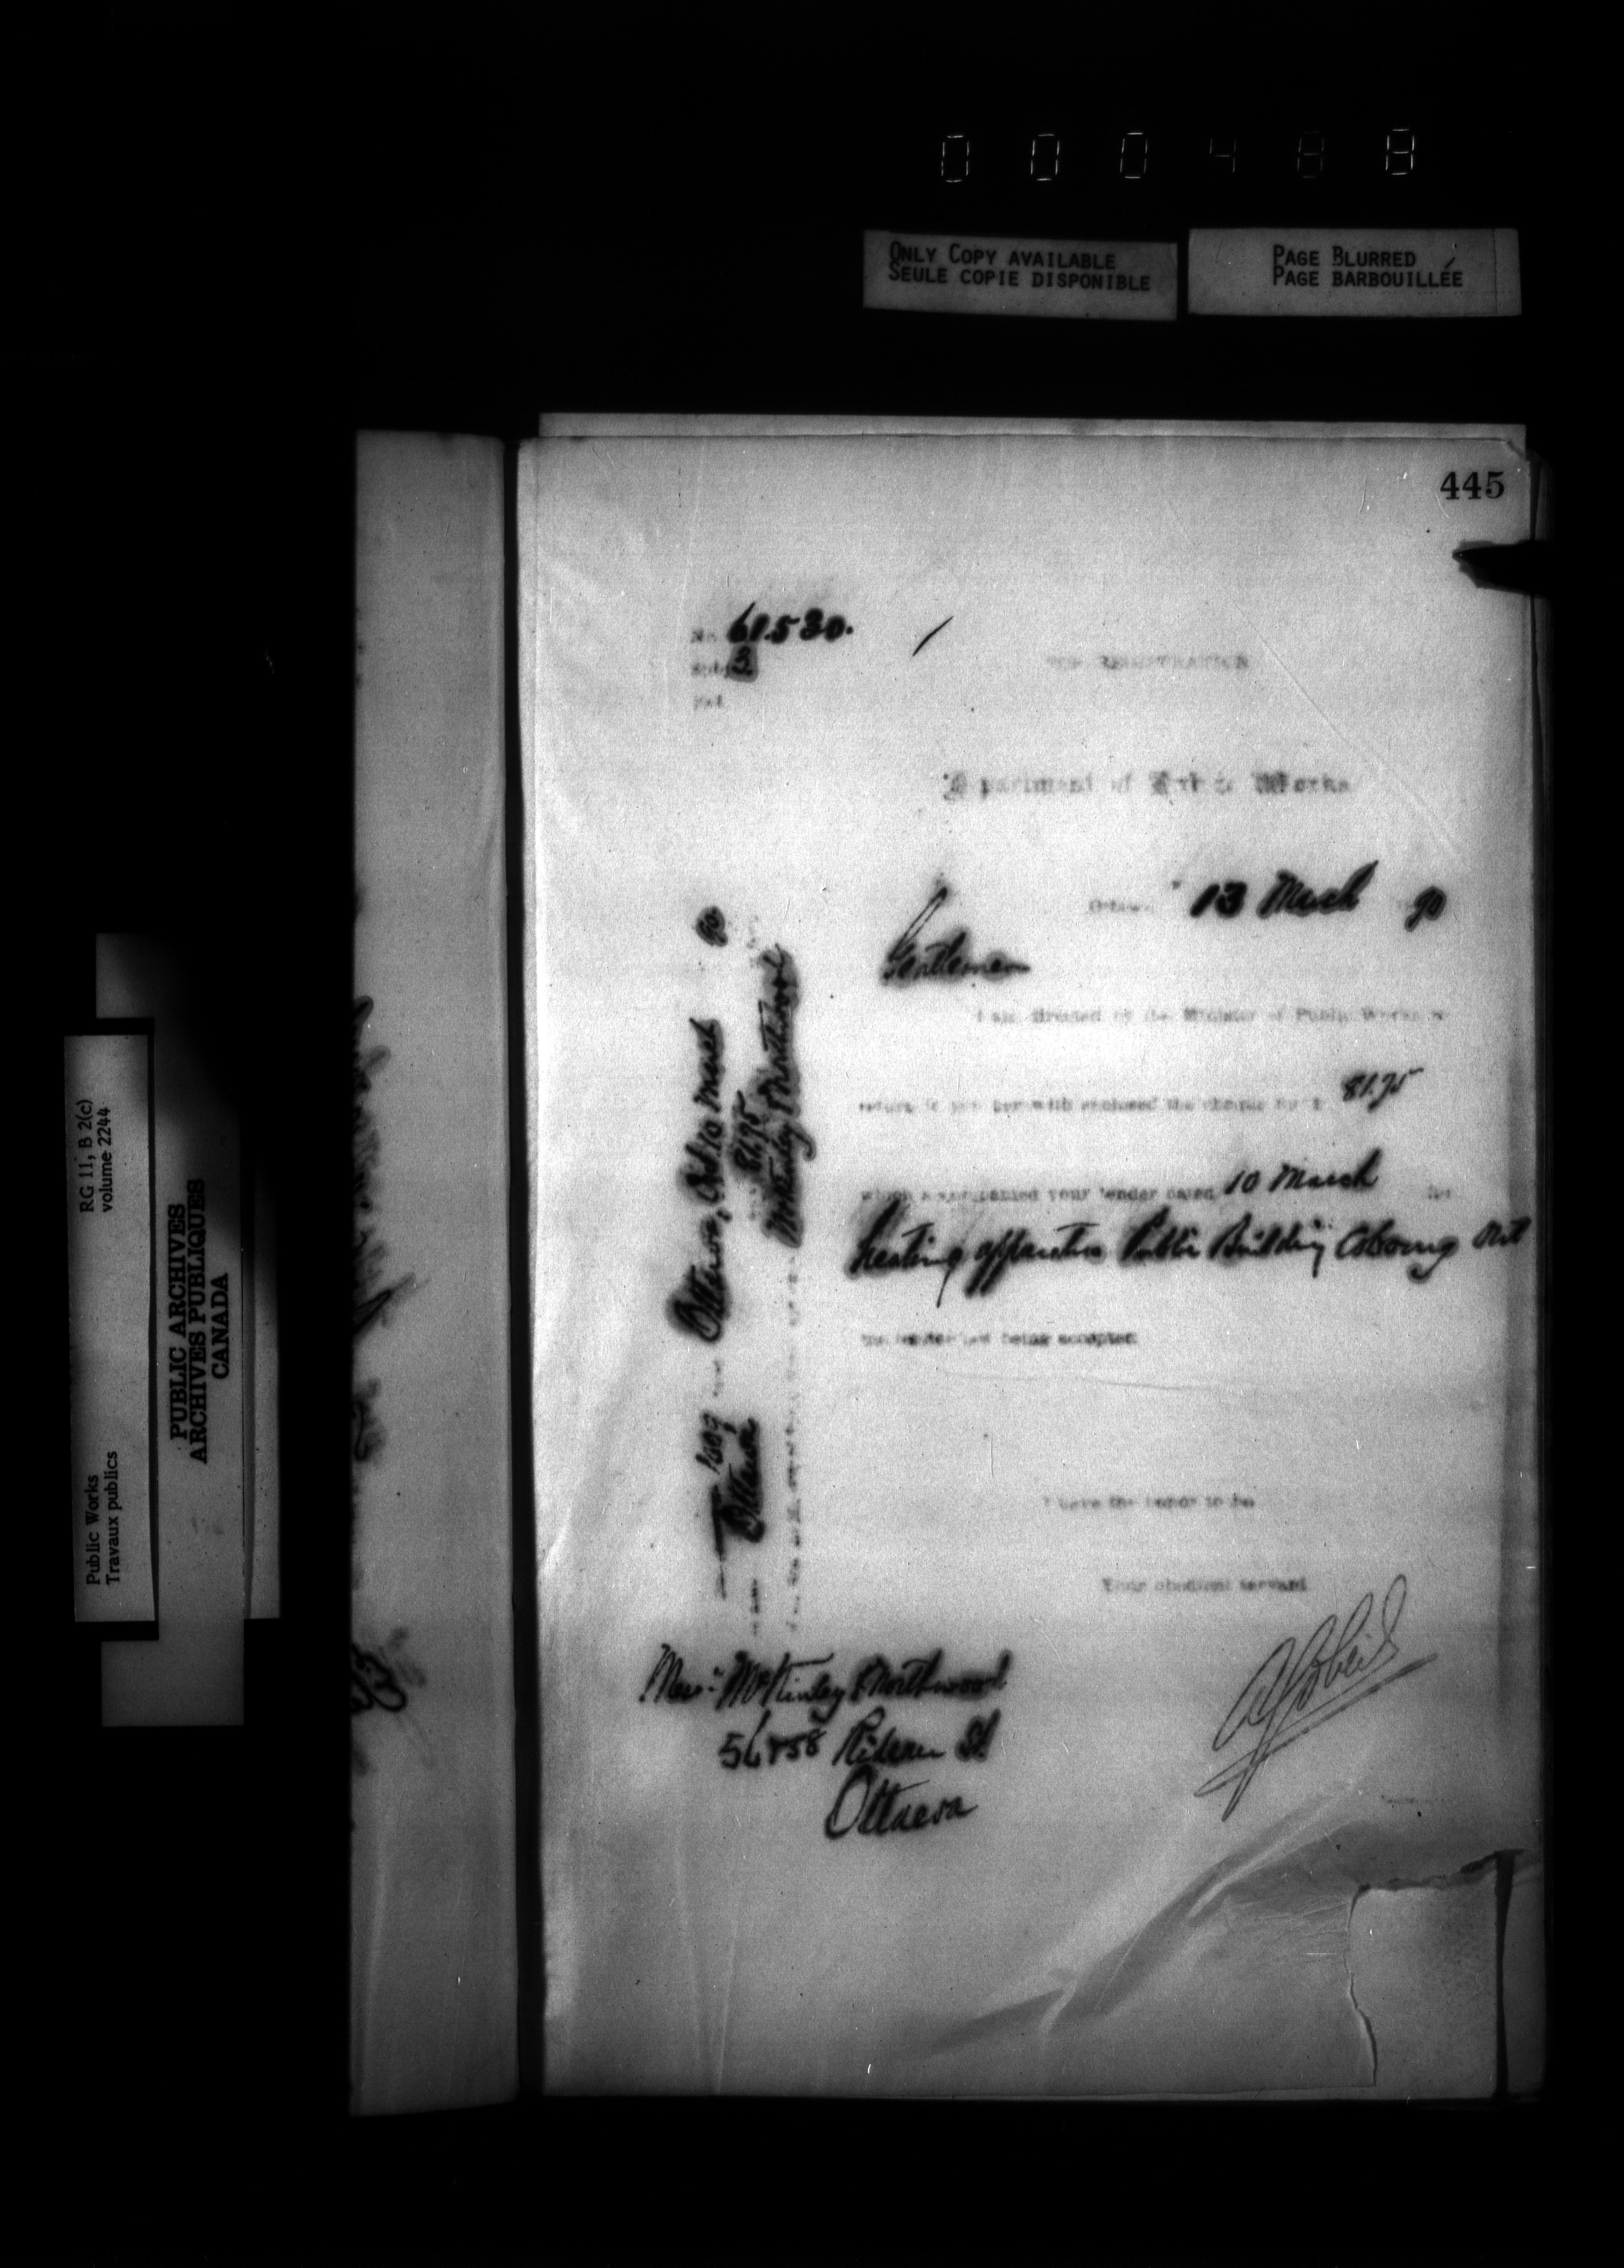 000488
ONLY COPY AVAILABLE
SEULE COPIE DISPONIBLE
PAGE BLURRED
PAGE BARBOUILLÉE
RG 11, B 2(c)
volume 2244
Public Works
Travaux publics
PUBLIC ARCHIVES
ARCHIVES PUBLIQUES
CANADA
445
No. 61530.
Subj. 3
Ref.
REGISTRATION
Department of Public Works
Ottawa 13 March 90
Gentlemen
I am directed by the Minister of Public Works to
return to you herewith enclosed the cheque for $ 81.75
which accompanied your tender dated 10 March for
heating apparatus Public Building Cobourg Ont
the tender not being accepted
I have the honor to be
Your obedient servant
Messrs McKinley & Northwood
56 & 58 Rideau St
Ottawa
Ottawa, 10 March 90
1009
81.75
Ottawa
McKinley & Northwood